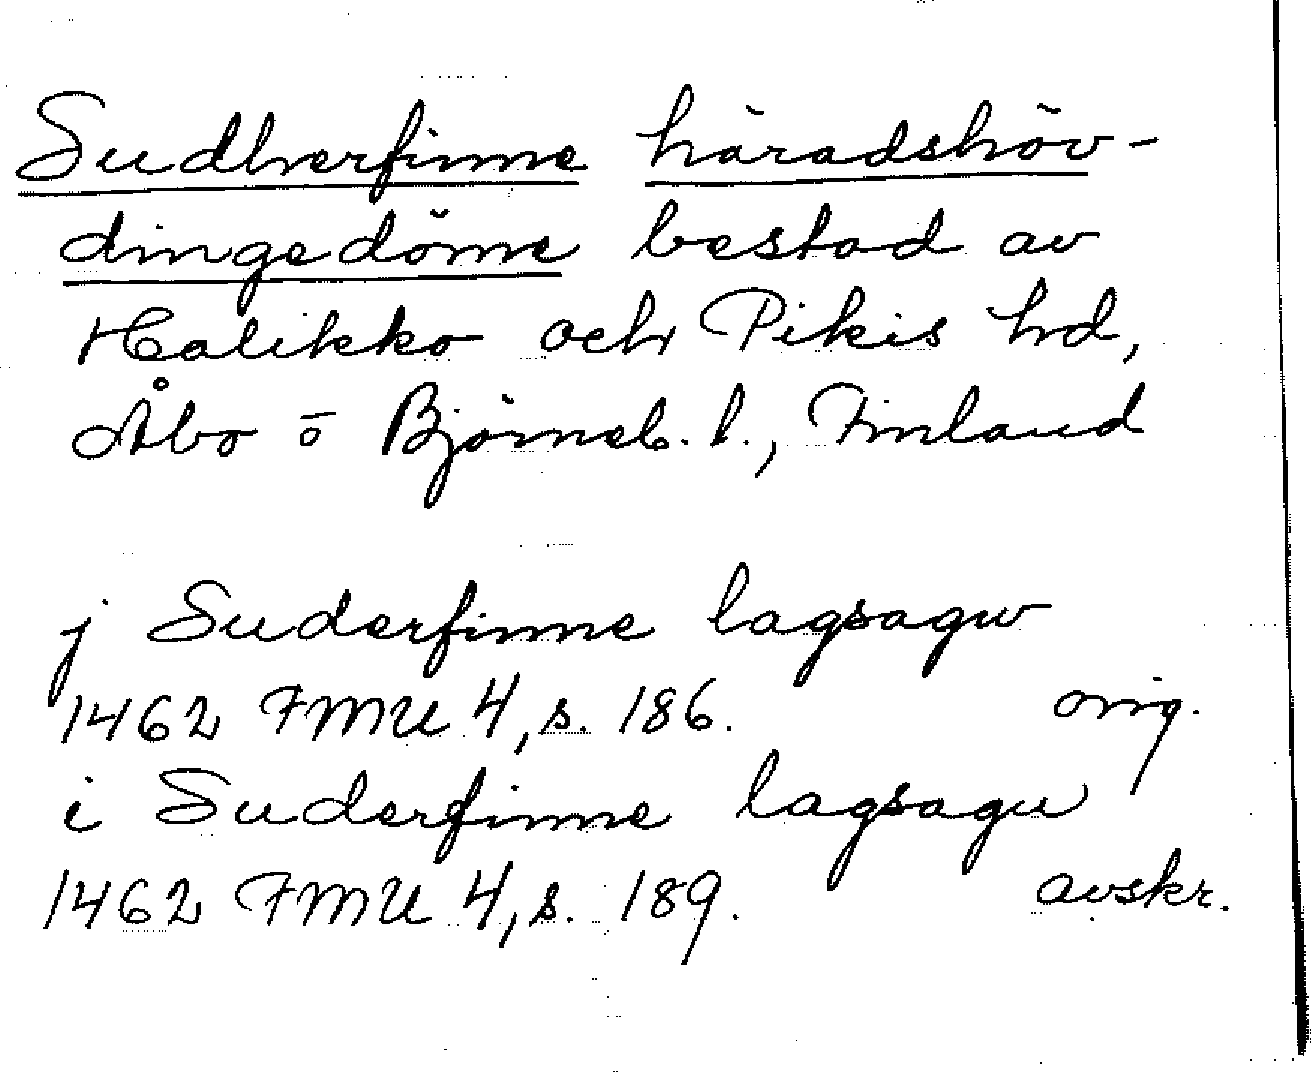 Sudherfinne häradshöv-
dingedöme bestod av
Halikko och Pikis hd,
Åbo o Björneb. l., Finland
j Suderfinne lagsagw
1462 FMU 4, s. 186. orig.
i Suderfinne lagsagu
1462 FMU 4, s. 189. avskr.